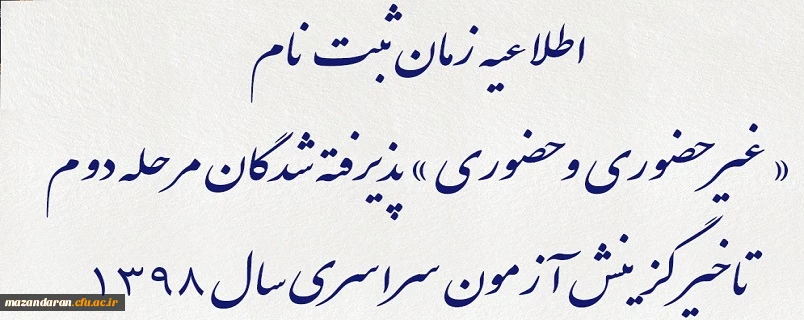 اطلاعیه زمان ثبت نام
« غیرحضوری و حضوری » پذیرفته شدگان مرحله دوم
تاخیر گزینش آزمون سراسری سال ۱۳۹۸
mazandaran.cfu.ac.ir